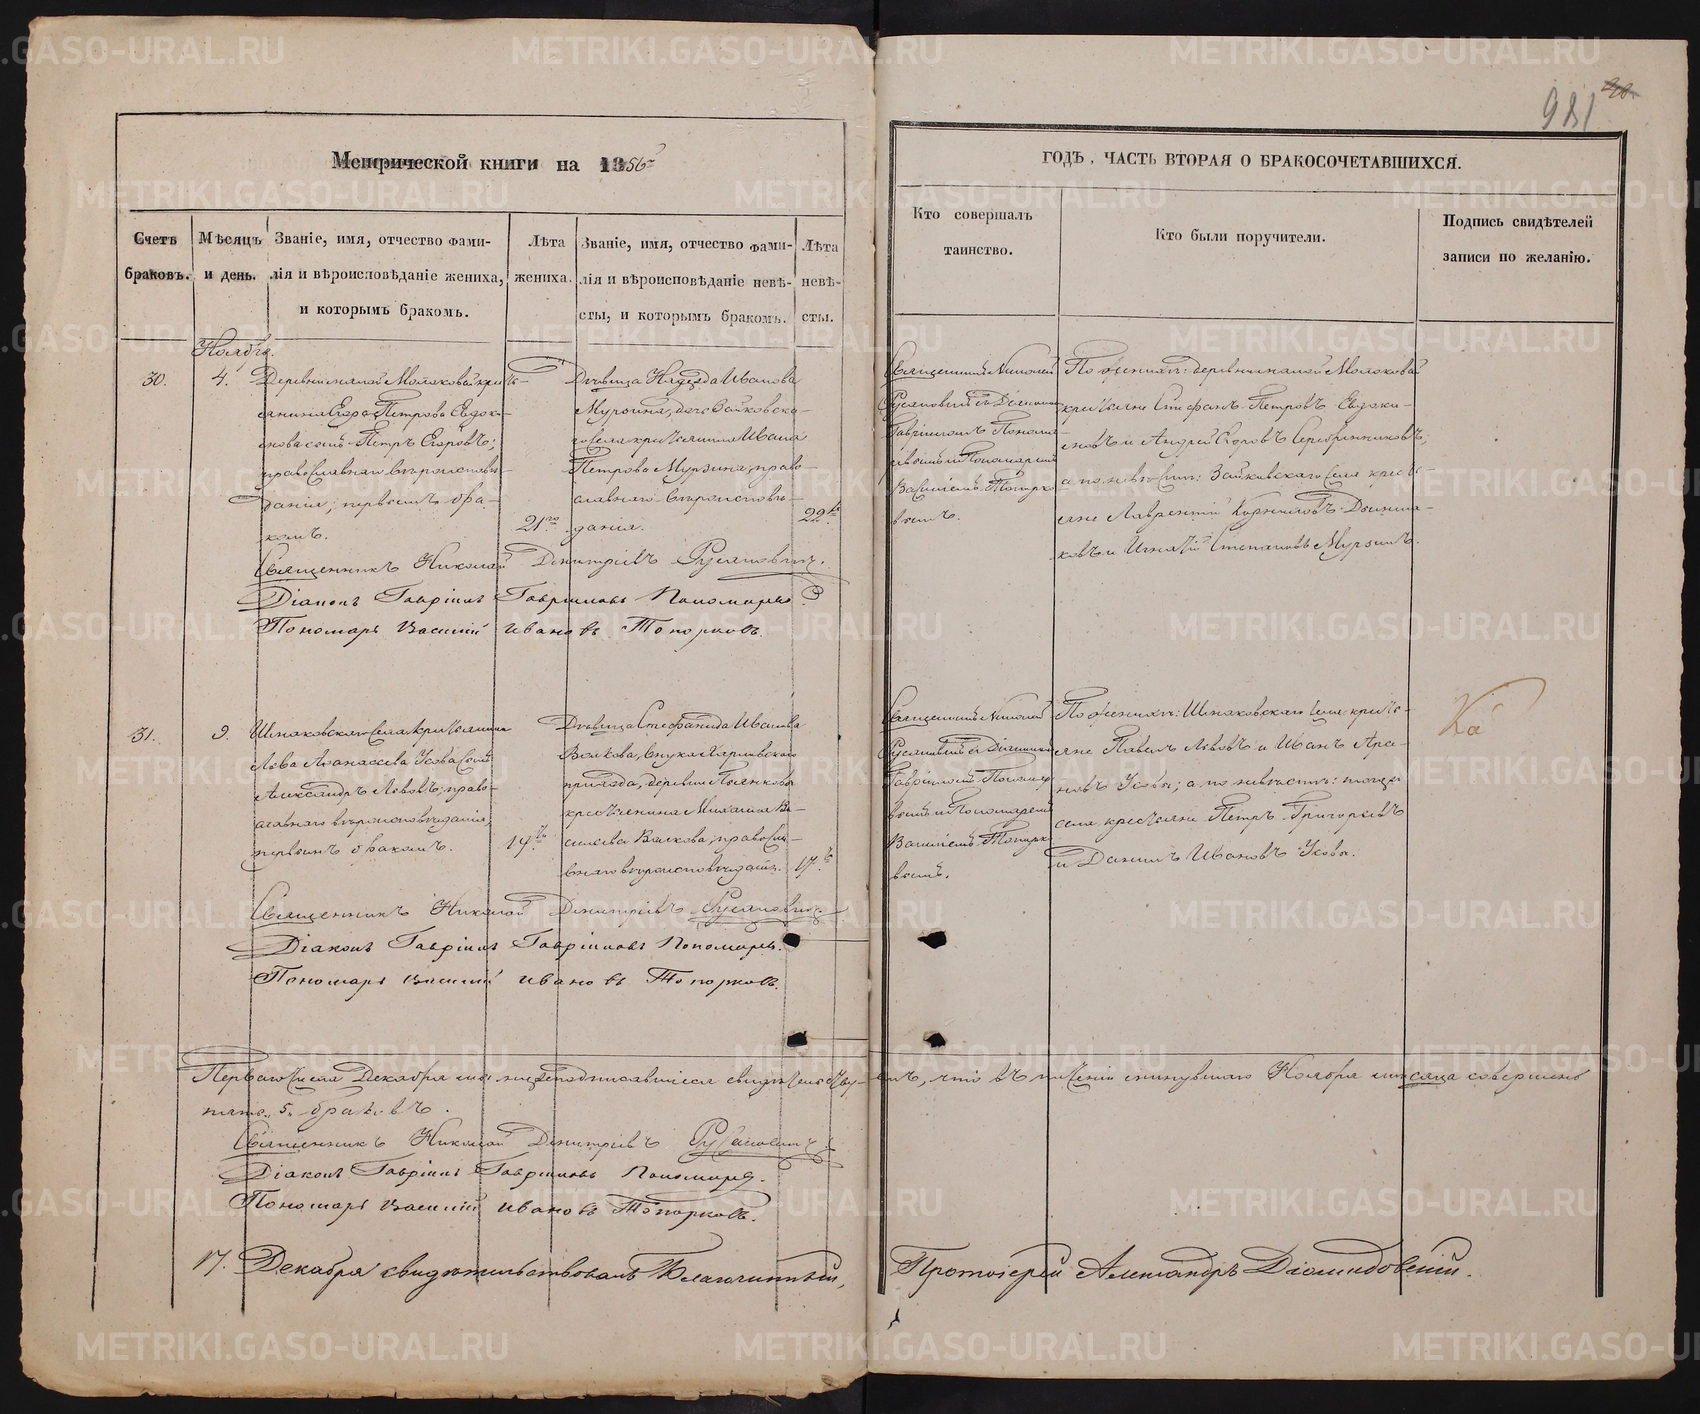 981
Метрической книги на 1856
ГОДЪ, ЧАСТЬ ВТОРАЯ О БРАКОСОЧЕТАВШИХСЯ.
Счетъ браковъ.
Мѣсяцъ и день.
Званіе, имя, отчество фами-
лія и вѣроисповѣданіе жениха,
и которымъ бракомъ.
Лѣта
жениха.
Званіе, имя, отчество фами-
лія и вѣроисповѣданіе невѣ-
сты, и которымъ бракомъ.
Лѣта
невѣ-
сты.
Кто совершалъ
таинство.
Кто были поручители.
Подпись свидѣтелей
записи по желанію.
Ноябрь.
30.
4.
Деревни малой Молоковой кресть-
янина Егора Петрова Евдоки-
мова сынъ Петръ Егоровъ;
православнаго вѣроисповѣ-
данія; первымъ бра-
комъ.
21
Дѣвица Надежда Иванова
Мурзина, дочь Зайковска-
го села крестьянина Ивана
Петрова Мурзина, право-
славнаго вѣроисповѣ-
данія.
22
Священникъ Николай
Гавріиломъ Пономаре-
вымъ и Пономаремъ
Василіемъ Топорко-
вымъ.
По женихѣ: деревни малой Молоковой
крестьяне Стефанъ Петровъ Евдоки-
мовъ и Андрей Егоровъ Серебренниковъ,
а по невѣстѣ: Зайковскаго села кресть-
яне Лаврентій Корниловъ
и Игнатій Степановъ Мурзинъ.
Священникъ Николай Димитріевъ Русановичъ.
Діаконъ Гавріилъ Гавріиловъ Пономаревъ
Пономарь Василій Ивановъ Топорковъ.
31.
9.
села крестьянина
Льва Аѳанасьева Усова сынъ
Александръ Львовъ; право-
славнаго вѣроисповѣданія,
первымъ бракомъ.
19
Дѣвица Стефанида Иванова
Волкова, внука
прихода, деревни
крестьянина Михаила Ва-
сильева Волкова, правосла-
внаго вѣроисповѣданія.
17
Священникъ Николай
Гавріиломъ Пономаре-
вымъ и Пономаремъ
Василіемъ Топорко-
вымъ.
По женихѣ: села кресть-
яне Павелъ Львовъ и Иванъ
Усовы; а по невѣстѣ: тогожъ
села крестьяне Петръ Григорьевъ
и Даніилъ Ивановъ Усовы.
Священникъ Николай Димитріевъ Русановичъ.
Діаконъ Гавріилъ Гавріиловъ Пономаревъ.
Пономарь Василій Ивановъ Топорковъ.
Перваго числа Декабря мы нижеподписавшіеся свидѣтельству-емъ, что въ теченіи минувшаго Ноября мѣсяца совершено
пять „5„ браковъ.
Священникъ Николай Димитріевъ Русановичъ.
Діаконъ Гавріилъ Гавріиловъ Пономаревъ.
Пономарь Василій Ивановъ Топорковъ.
17. Декабря свидѣтельствовалъ Благочинный, Протоіерей Александръ Діомидовскій.
METRIKI.GASO-URAL.RU